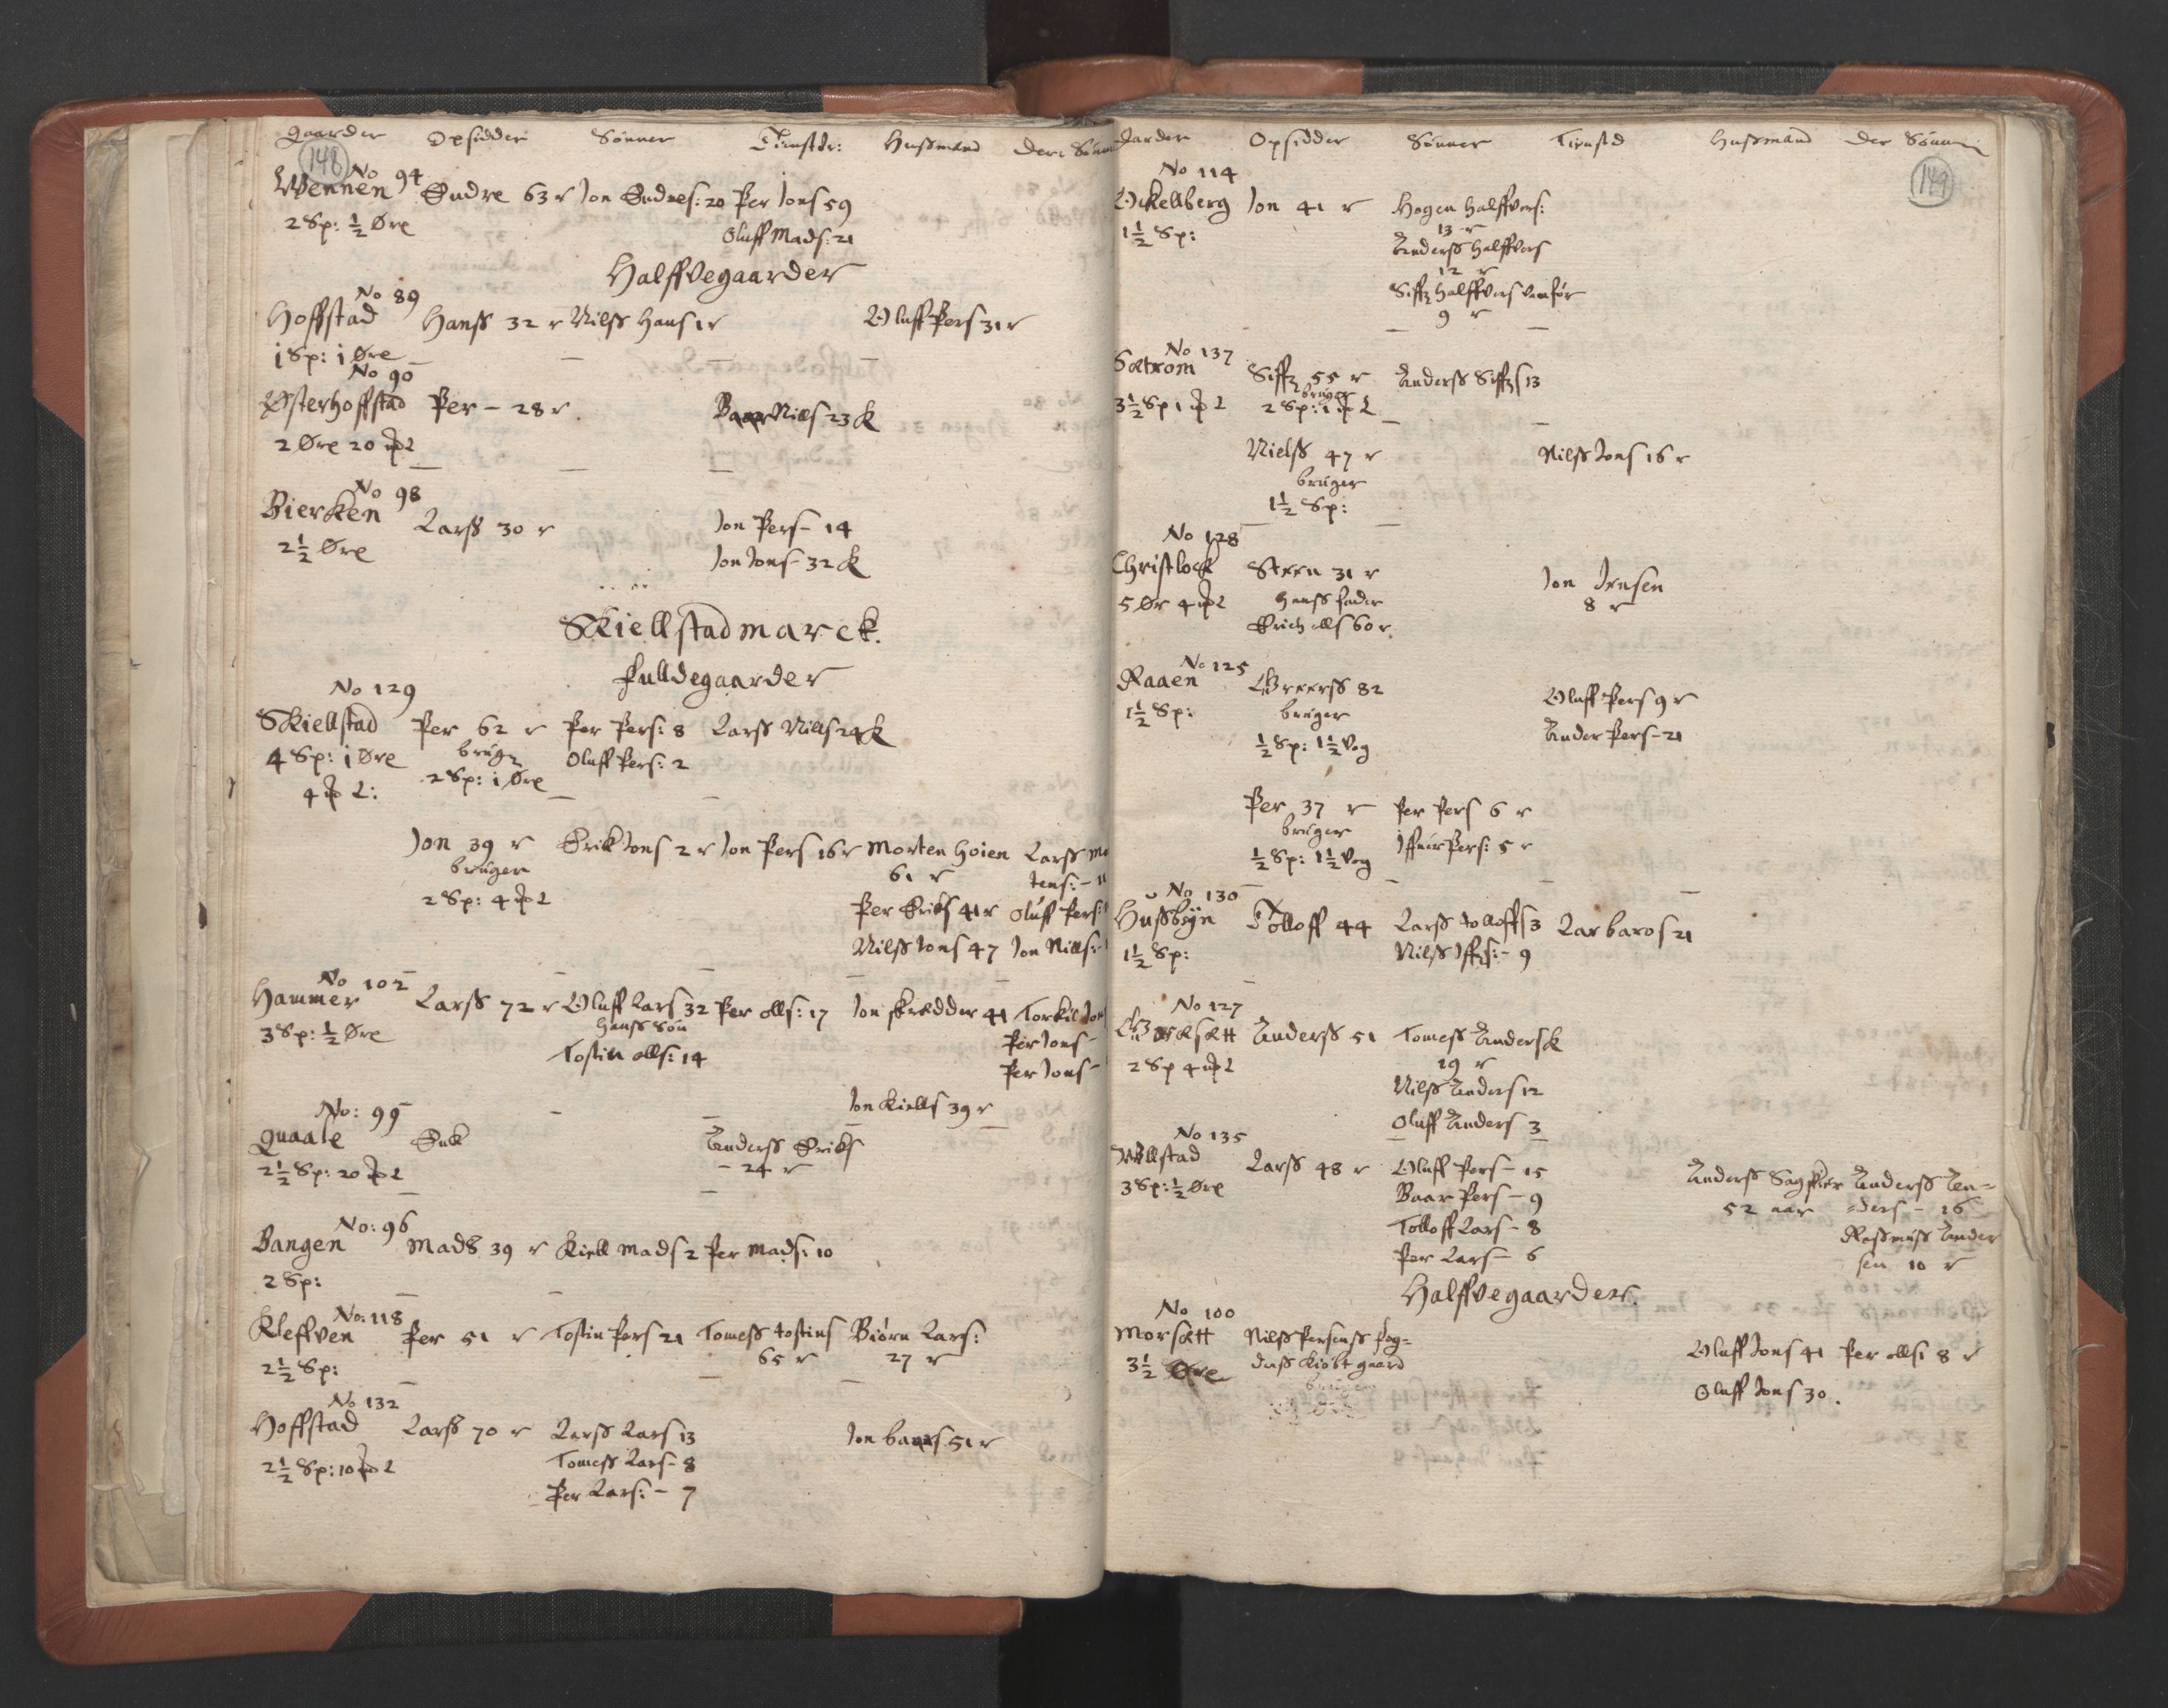 Gaarder Opsidder Sönner Tienst dr: Hussmend Deris Sönn
148
No 94
Wennen Endre 63 r Jon Endres: 20 Per Jons 59
2 Sp: ½ Øre Oluff Mads: 21
Halffvegaarder
No 89
Hoffstad Hanss 32 r Nilss Hans 1 r Oluff Pers 31 r
1 Sp: 1 Øre
No 90
Østerhoffstad Per - 28 r Baar Nills 23 k
2 Øre 20 ℔ L
No 98
Bierken Larss 30 r Jon Pers - 14
2½ Øre Jon Jons - 32 k
Skiellstadmarck.
fulldegaarder
No 129
Skiellstad Per 62 r Per Pers: 8 Larss Nills 24 k
4 Sp: 1 Øre brug Oluff Pers: 2
4 ℔ L: 2 Sp: 1 Øre
Jon 39 r Erik Jons 2 r Jon Pers 16 r Morten Hoien Larss Mo
bruger 61 r tens: - 11
2 Sp: 4 ℔ L Per Eriks 41 r Oluff Pers:
Nilss Jons 47 Jon Nills:
No 102
Hammer Larss 72 r Oluff Lars 32 Per olls: 17 Jon skredder 41 Torkil Jon
3 Sp: ½ Øre hanss sön Per Jons -
Tostin olls: 14 Per Jons -
Jon Kiells 39 r
No: 99
Quaale Enk Anderss Eriks
2½ Sp: 20 ℔ L - 24 r
No: 96
Bangen Mads 39 r Kiell Mads 2 Per Mads: 10
2 Sp:
No: 118
Kleffven Per 51 r Tostin Pers 21 Tomess tostins Biörn Lars:
2½ Sp: 65 r 27 r
No 132
Hoffstad Larss 70 r Larss Lars 13 Jon baars 51 r
2½ Sp: 10 ℔ L Tomess Lars - 8
Per Lars: - 7
Garder Opsidder Sönner Tienstd Hussmand Der Sönn
149
No 114
Ockellberg Jon 41 r Hogen Halffvers:
1½ Sp: 13 r
Anderss Halffvers
12 r
Siff Halffvers vanför
9 r
No 137
Sætrom Siff 55 r Anderss Siffs 13
3½ Sp 1 ℔ L bruger
2 Sp: 1 ℔ L
Nielss 47 r Nilss Jons 16 r
bruger
1½ Sp:
No 128
Christlock Steen 31 r Jon Jensen
5 Ør 4 ℔ L hanss fader 8 r
Erich olls 60 r.
No 125
Raaen Greerss 82 Oluff Pers 9 r
1½ Sp: bruger Ander Pers - 21
½ Sp: 1½ Vog
Per 37 r Per Pers 6 r
bruger Iffuir Pers: 5 r
½ Sp: 1½ Vog
No 130
Hussbyn Tolloff 44 Larss tolloffs 3 Lars baros 21
1½ Sp: Nilss Iffs: - 9
No 127
Anderss 51 Tomess Anders k
2 Sp 4 ℔ L 19 r
Nilss Anders 12
Oluff Anders 3
No 135
Larss 48 r Oluff Pers - 15 Anderss Sagskier Anderss An=
3 Sp: ½ Øre Baar Pers - 9 52 aar =ders - 16
Tolloff Lars - 8 Rassmuss Ander
Per Lars - 6 sen 10 r
Halffvegaarder.
No 100
Morsett Nilss Persenss fog= Oluff Jons 41 Per olls: 8 r
3½ Øre dess kiöbt gaard
Oluff Jons 30.